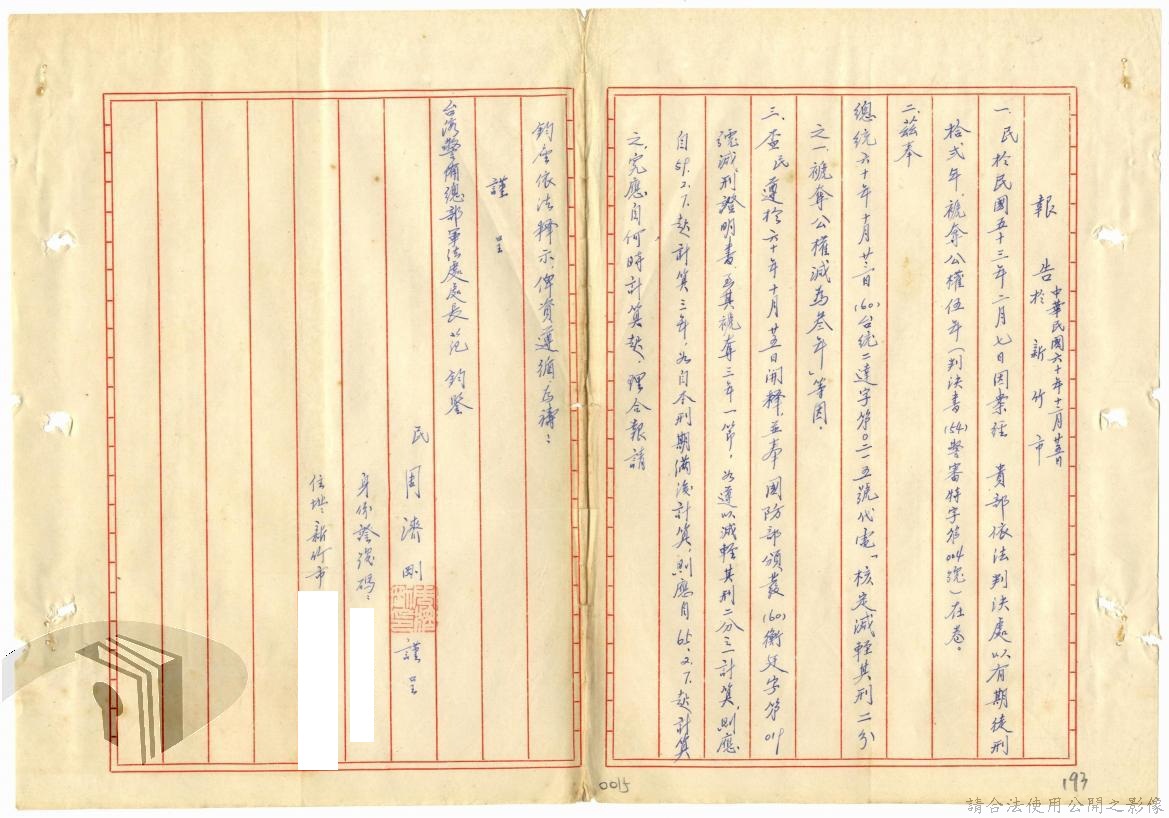 報告 中華民國六十年十二月廿五日
於新竹市
一、民於民國五十三年二月七日因案經 貴部依法判決處以有期徒刑
拾貳年，褫奪公權伍年（判決書(54)警審特字第014號）在卷。
二、茲奉
總統六十年十月廿二日(60)台統二達字第〇二一五號代電「核定減輕其刑二分
之一，褫奪公權減為叁年」等因。
三、查民遵於六十年十月廿五日開釋，並奉 國防部頒發(60)衡廷字第019
號減刑證明書，至其褫奪三年一節，如遵以減輕其刑二分之一計算，則應
自59.2.7.起計算三年，如自本刑期滿後計算，則應自65.2.7.起計算
之，究應自何時計算起，理合報請
鈞座依法釋示俾資遵循，為禱：
謹 呈
台灣警備總部軍法處處長范 鈞鑒
民 周濟剛 謹呈
身份證號碼：
住址：新竹市
0015
193
請合法使用公開之影像